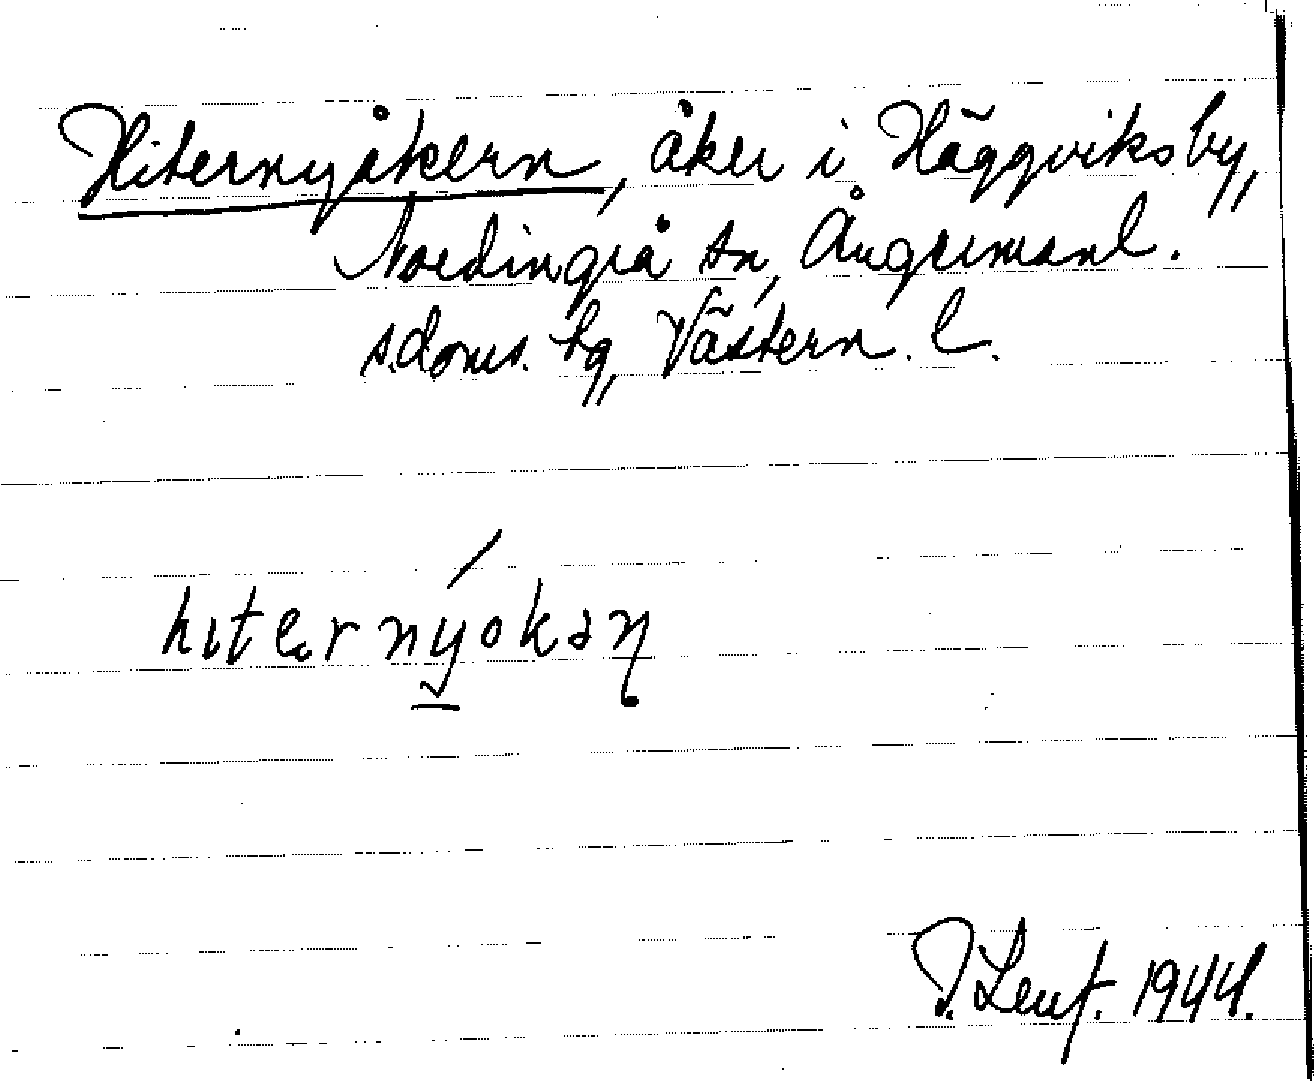 Hiternyåkern, åker i Häggviks by,
Nordingrå sn, Ångermanl.
s. doms. tg, Västern. l.
hıternýokaɳ
J. Leuf. 1944.